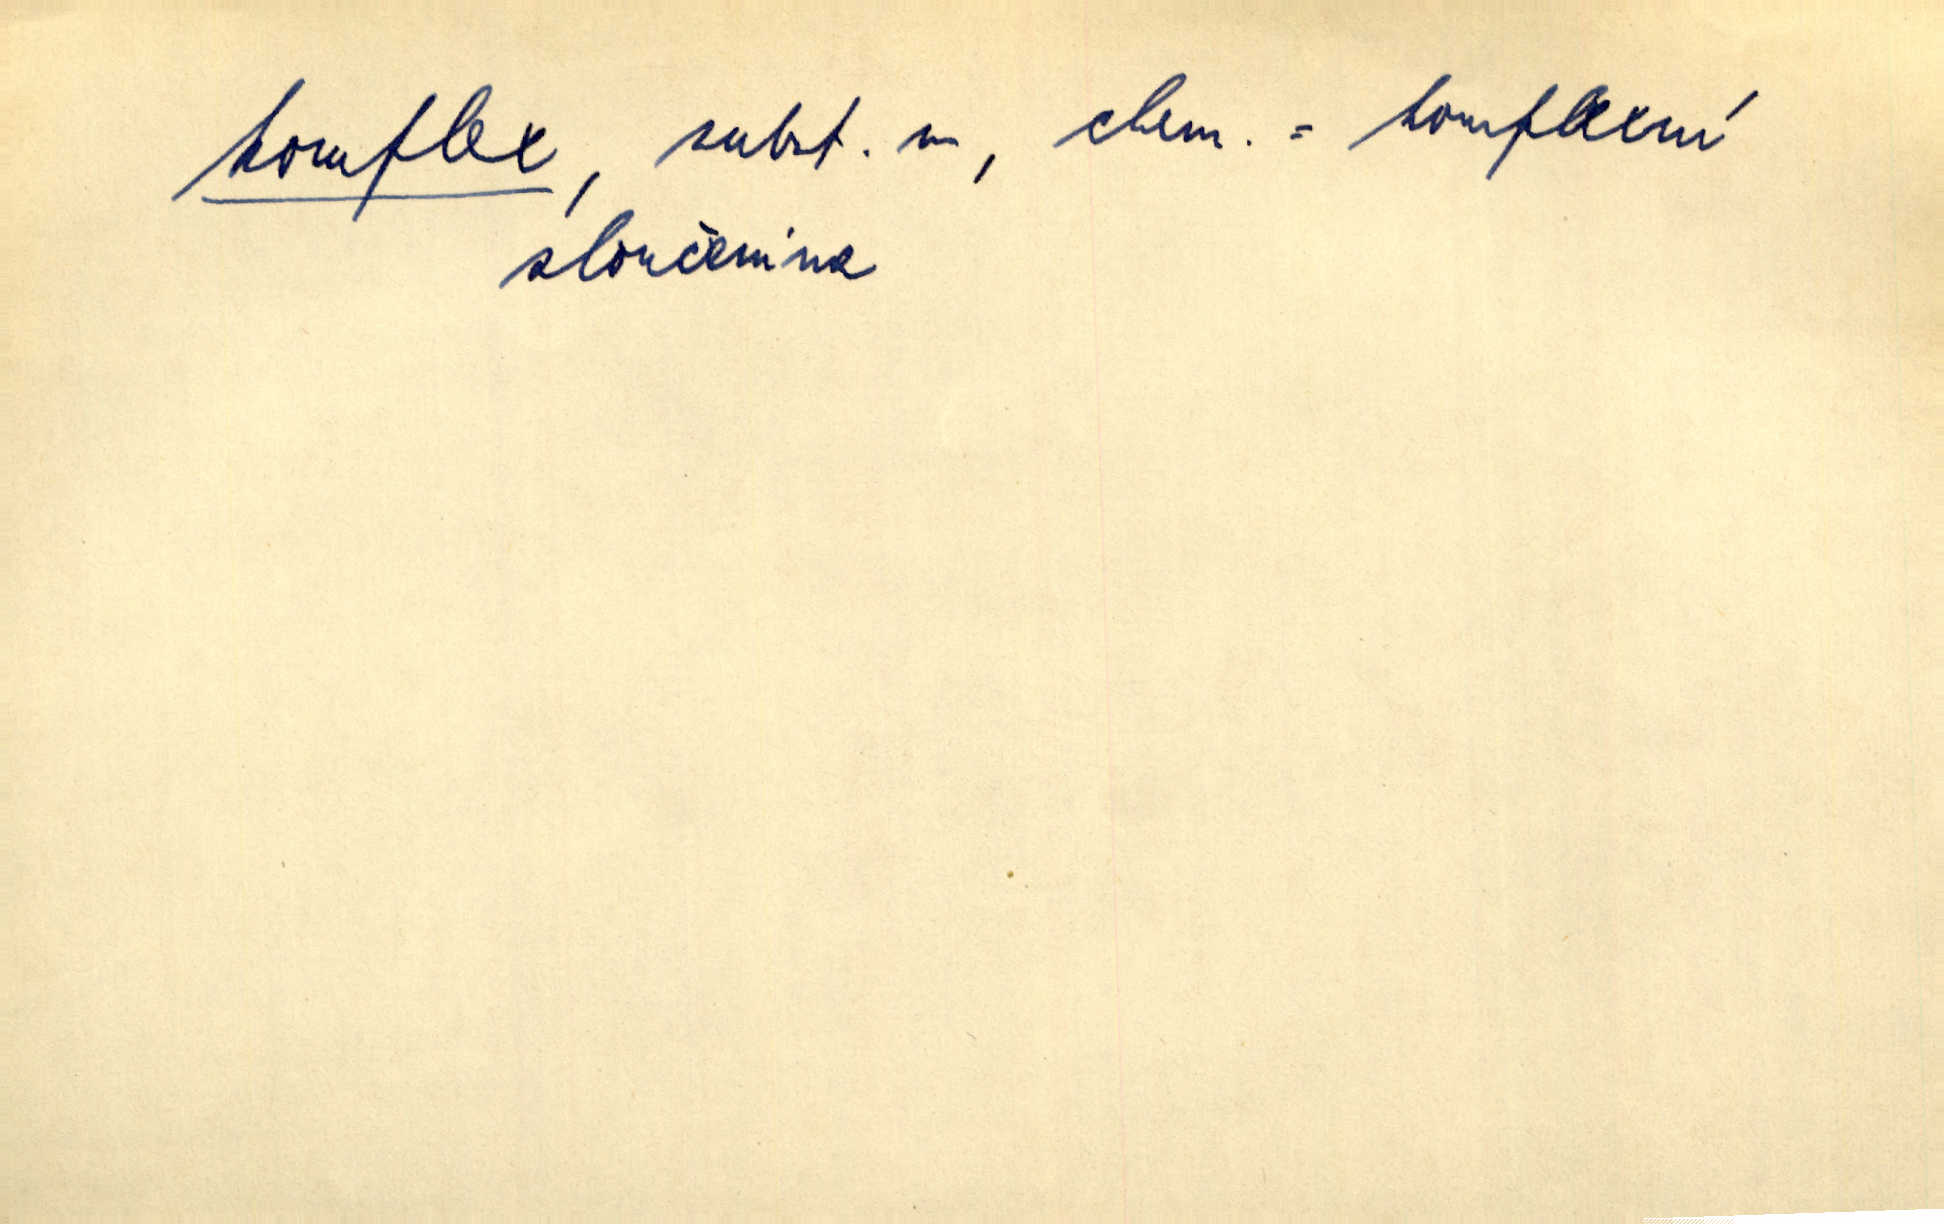 komplex, subst. m, chem. = komplexní
sloučenina